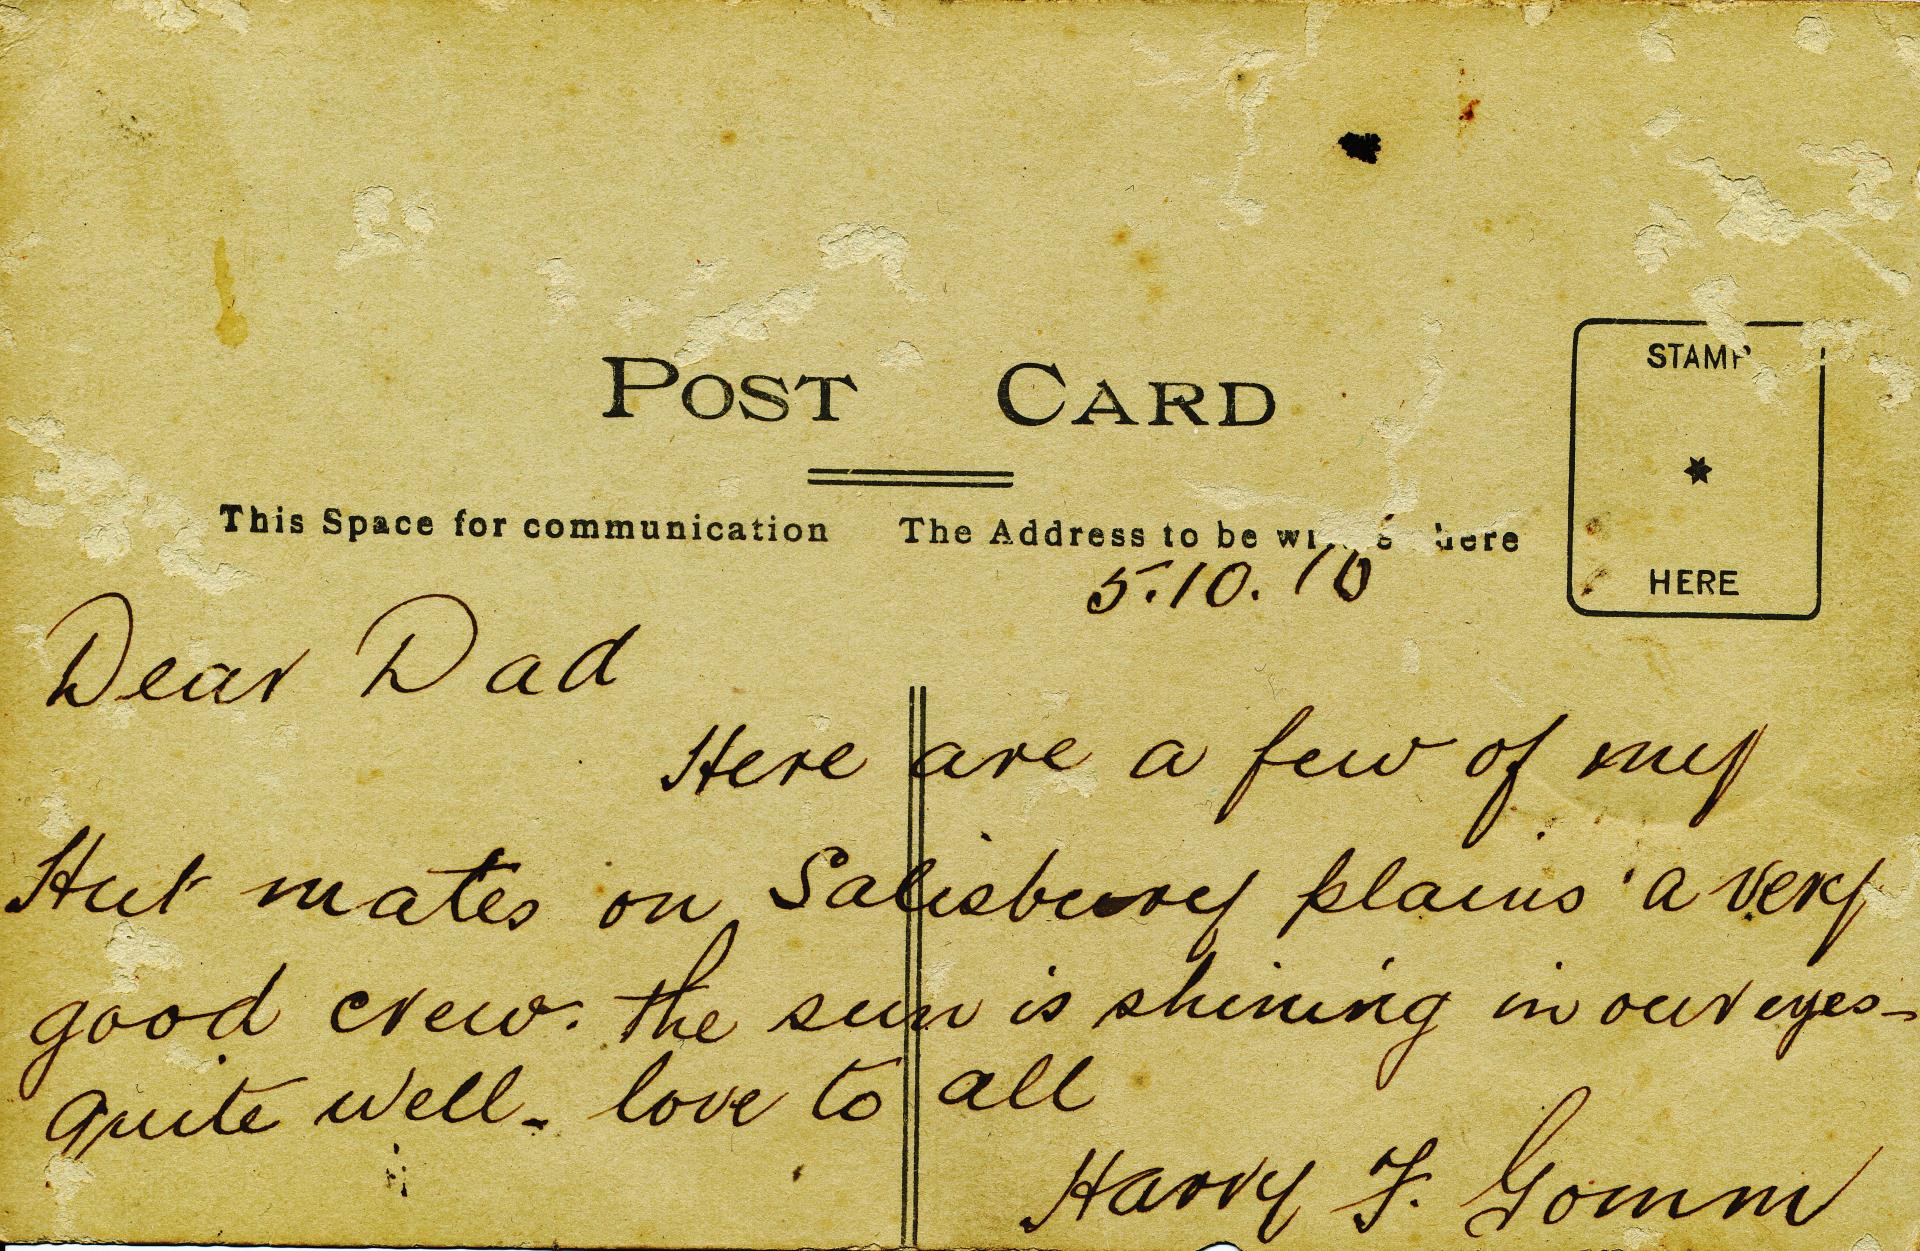 POST CARD
STAMP
This Space for communication The Address to be here
HERE
5.10.
Dear Dad
Here are a few of my
Hut mates on Salisbury plains a very
good crew. the sun is shining in our eyes-
quite well- love to all
Harry F. Gomm